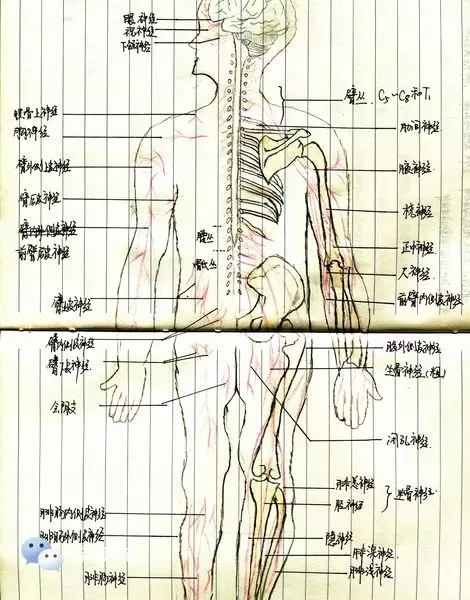 眼神经
视神经
下颌神经
臂丛. C5~C8和T1
肋间神经
腋神经
桡神经
正中神经
尺神经
前臂内侧皮神经
臂外侧上皮神经
臂后皮神经
前臂后皮神经
腰丛
骶丛
臀上皮神经
臀下皮神经
会阴支
股外侧皮神经
坐骨神经(粗)
闭孔神经
腓总神经
胫神经
坐骨神经
隐神经
腓深神经
腓浅神经
腓肠内侧皮神经
腓肠外侧皮神经
腓肠神经